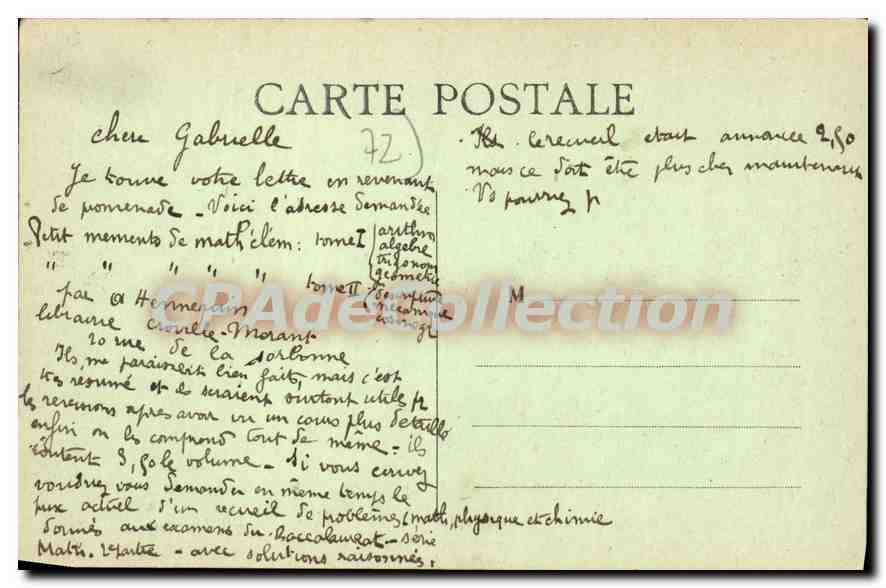 CARTE POSTALE
chere Gabrielle
72
Je trouve votre lettre en revenant
de promenade - Voici l'adresse demandée
Petit memento de math élém : tome I arithm
algèbre
trigonom
géometrie
" " " " " tome II descriptive
mécanique
cosmogr
par A Hennequin
librairie Croville-Morant
20 rue de la Sorbonne
Ils me paraissent bien faits, mais c'est
tres resumé et ils seraient surtout utiles pr
les revisions apres avoir vu un cours plus detaillé
enfin on les comprend tout de même - ils
coutent 3,50 le volume - Si vous ecrivez
voudriez vous demander en même temps le
prix actuel d'un recueil de problèmes (math, physique et chimie
donnés aux examens du Baccalaureat - série
Math. 2e partie - avec solutions raisonnées.
le recueil etait annoncé 2,50
mais ce doit être plus cher maintenant
Vs pourriez pr
M
CPAdeCollection